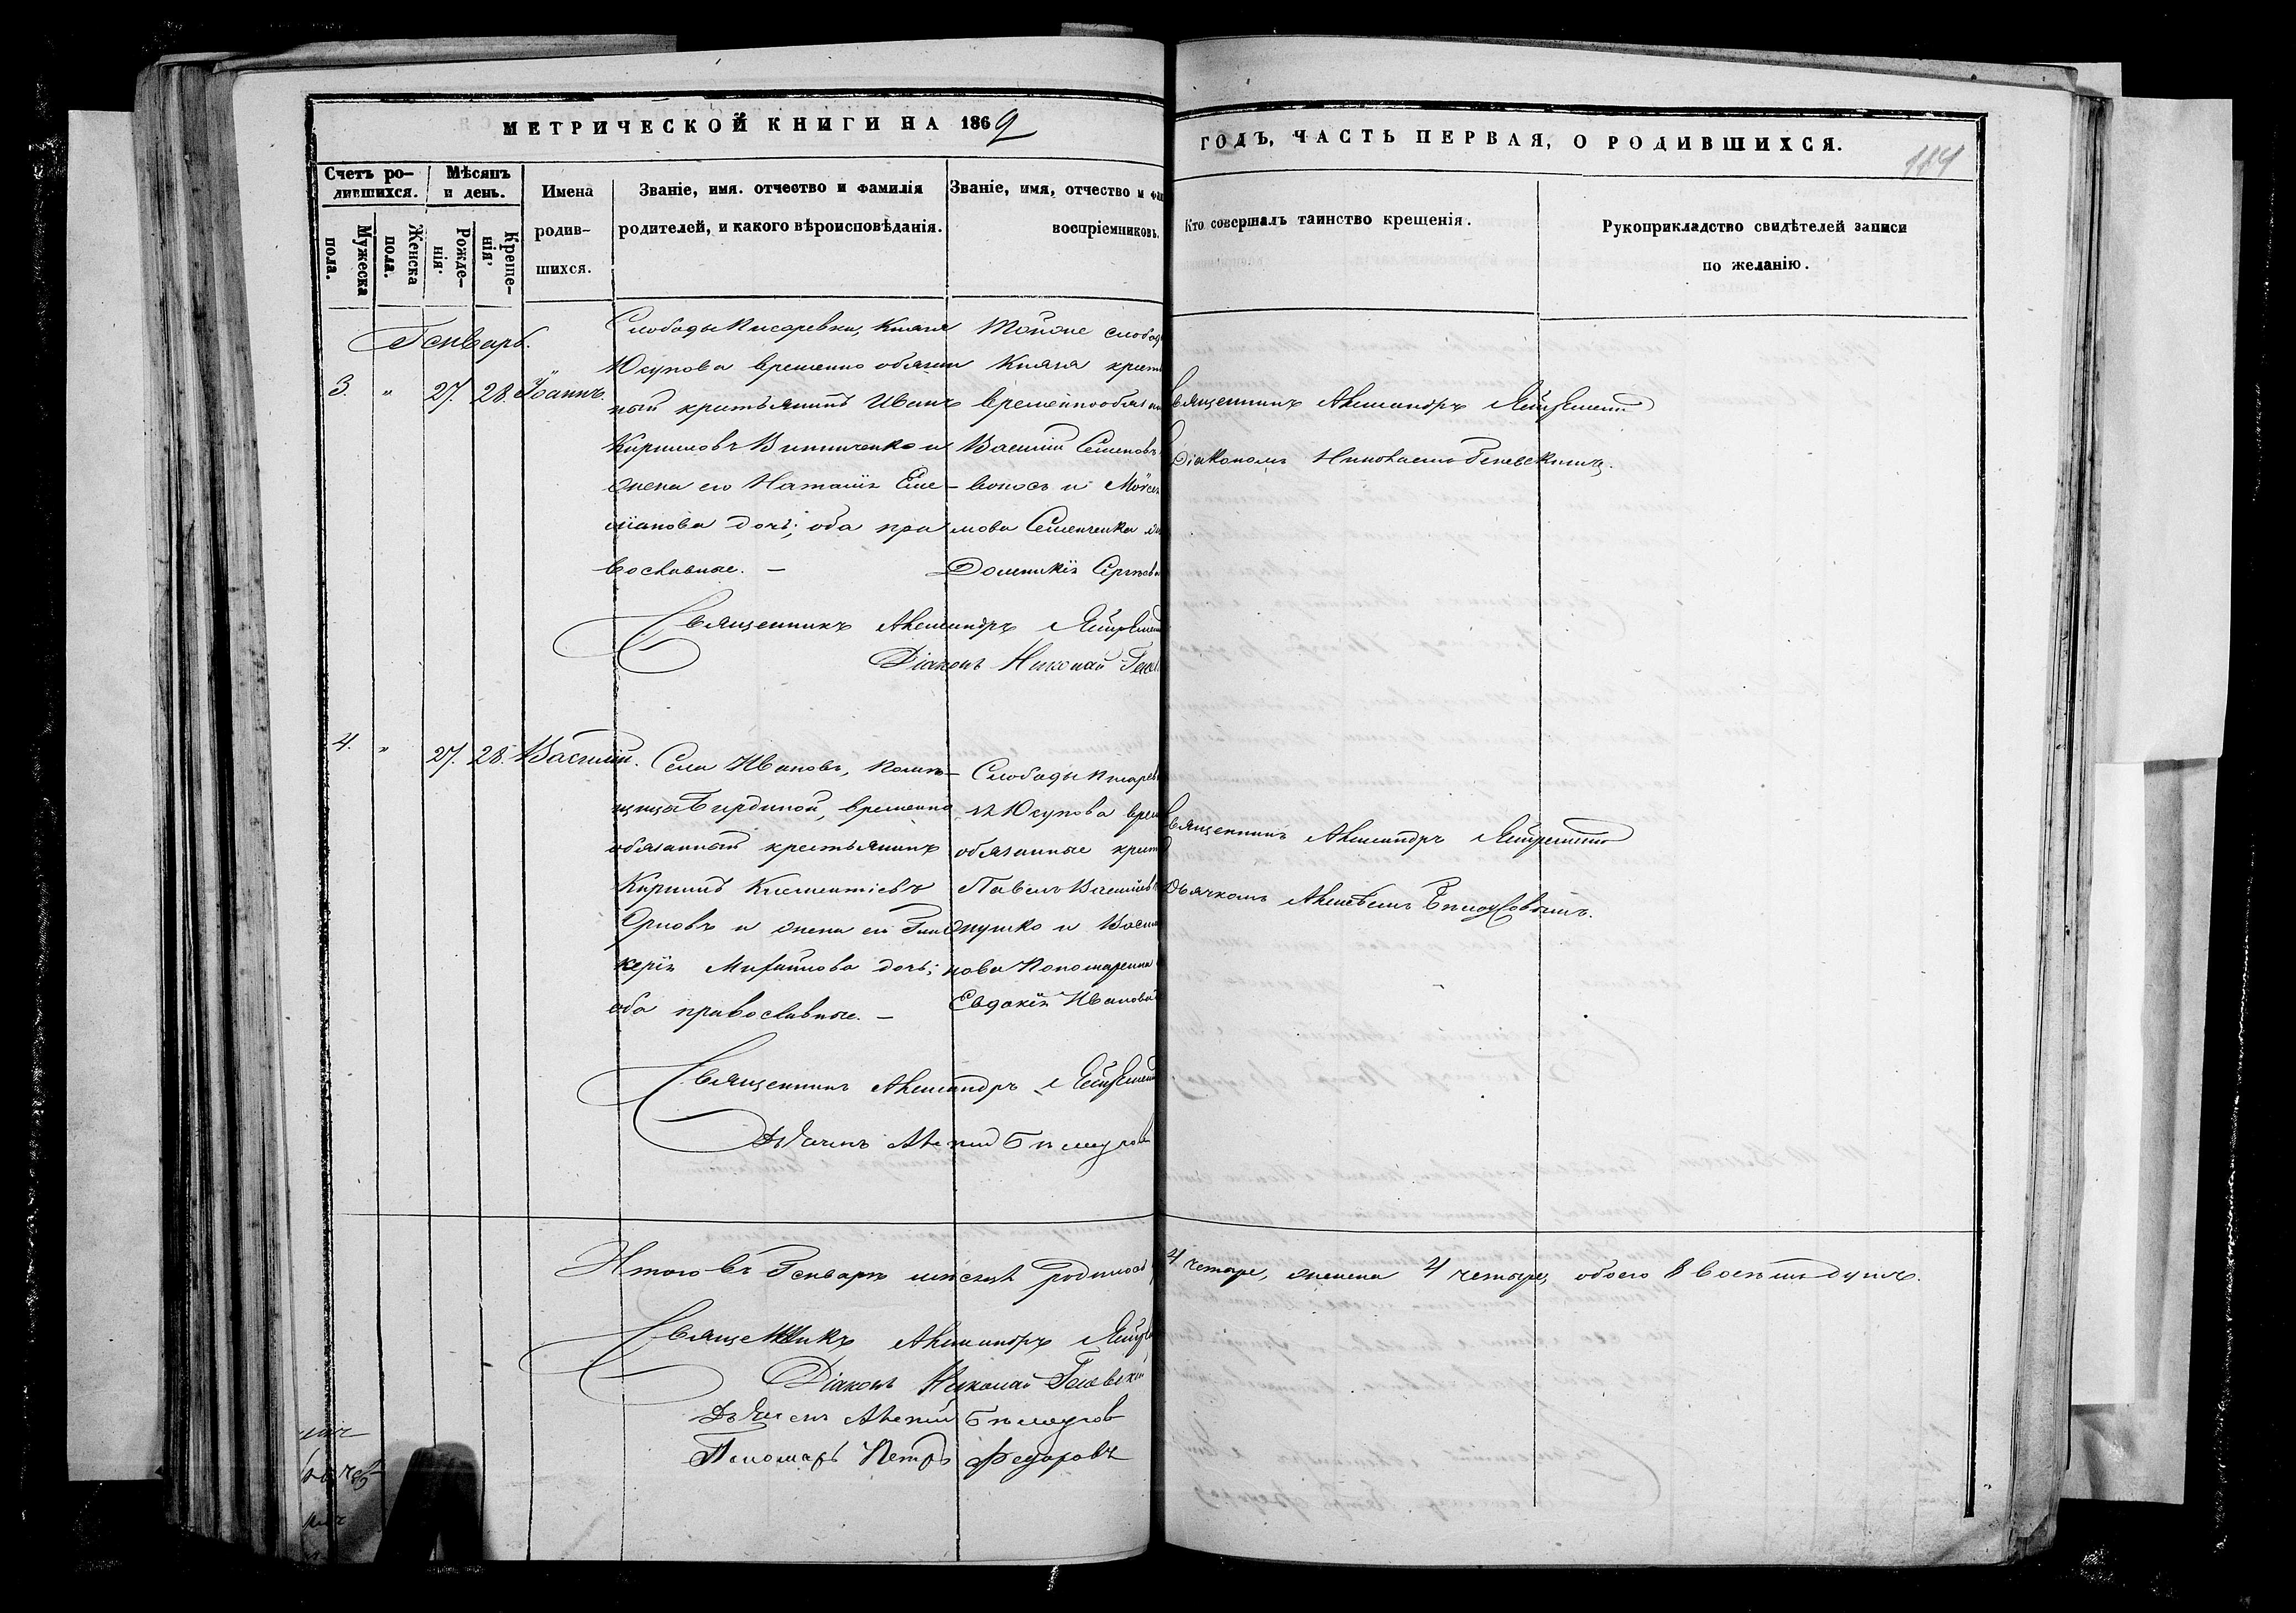 МЕТРИЧЕСКОЙ КНИГИ НА 1869
ГОДЪ, ЧАСТЬ ПЕРВАЯ, О РОДИВШИХСЯ.
114
Счетъ ро-
дившихся.
Мѣсяцъ
и день.
Мужеска
пола.
Женска
пола.
Рожде-
нія
Креще-
нія
Имена
родив-
шихся.
Званіе, имя. отчество и фамилія
родителей, и какого вѣроисповѣданія.
Званіе, имя, отчество и фа
воспріемниковъ.
Кто совершалъ таинство крещенія.
Рукоприкладство свидѣтелей записи
по желанію.
Генварь.
3. „ 27. 28. Іоаннъ.
Слободы Писаревки, Князя
Юсупова временно обязан
ный крестьянинъ Иванъ
Кирилловъ Винниченко и
жена его Наталія Еме-
ліанова дочь; оба пра
вославные. —
Тойже слобод
Князя крест
временнообязан
Василій Семеновъ
и Моѵсе
Семенченка
Домникія Сергѣева
Священникъ Александръ
Діаконъ Николай
Священникъ Александръ
Діакономъ Николаемъ
4. „ 27. 28. Василій.
Села Ивановъ, Помѣ-
щица Бирдиной, временно
обязанный крестьянинъ
Кириллъ Климентіевъ
и жена его Гли
керія Михайлова дочь;
оба православные. —
Слободы Писарев
Юсупова врем
обязанные крест
Павелъ Василіев
и Васил
нова Пономаренка
Евдокія Иванова
Священникъ Александръ
Дьячекъ Алексій Бѣлоусов
Священникъ Александръ
Дьячкомъ Алексѣемъ Бѣлоусовымъ.
Итого въ Генварѣ мѣсяцѣ родилось
4 четыре, женска 4 четыре, обоего 8 восемь душъ.
Священникъ Александръ
Діаконъ Николай
Дьячекъ Алексій Бѣлоусов
Пономарь Петръ Федоровъ